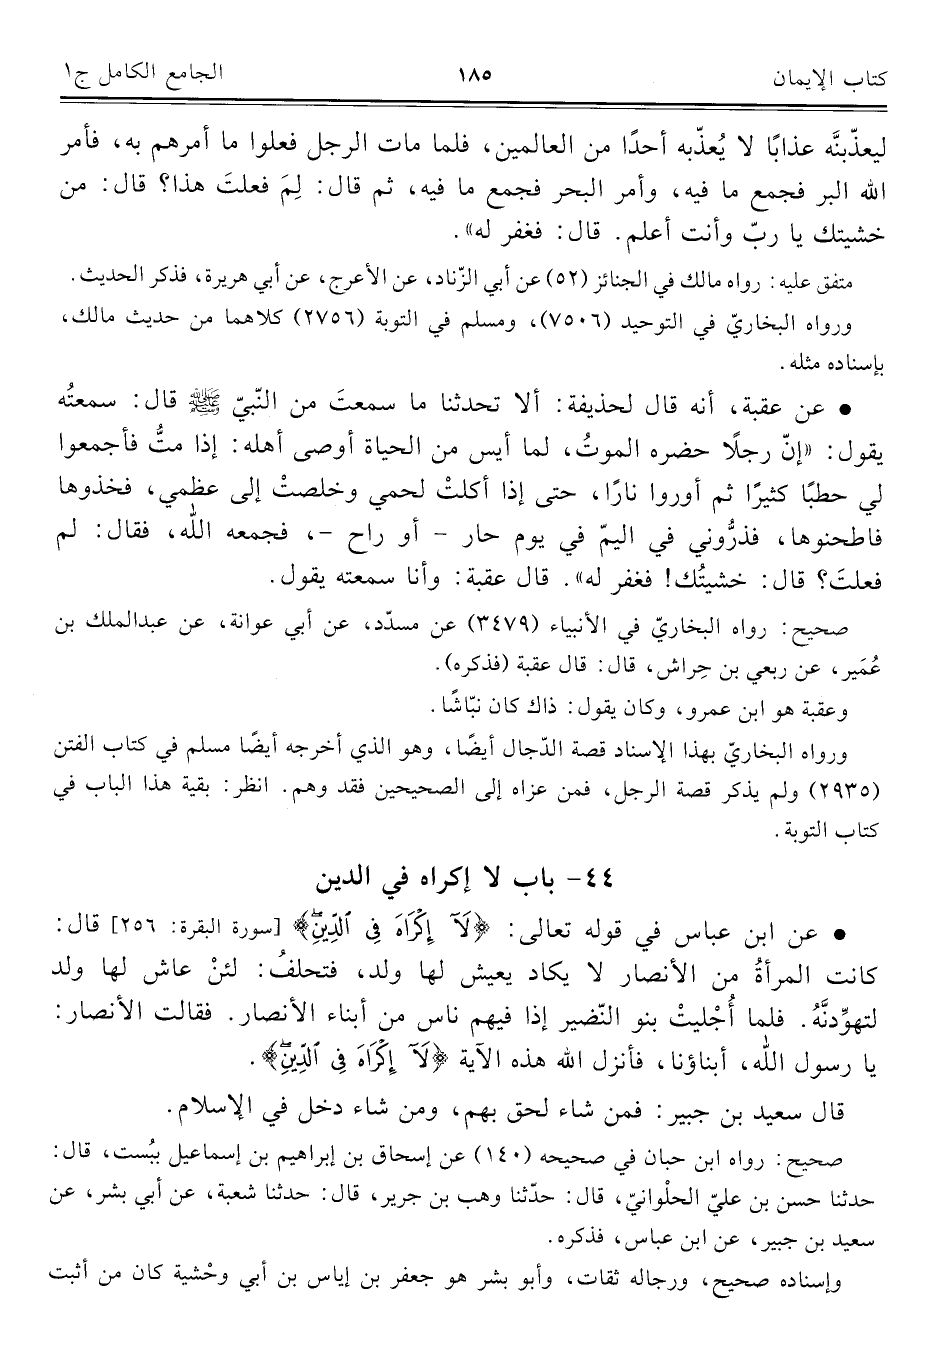 كتاب الإيمان ١٨٥ الجامع الكامل ج١
ليعذّبنَّه عذابًا لا يُعذّبه أحدًا من العالمين، فلما مات الرجل فعلوا ما أمرهم به، فأمر
الله البر فجمع ما فيه، وأمر البحر فجمع ما فيه، ثم قال: لِمَ فعلتَ هذا؟ قال: من
خشيتك يا ربّ وأنت أعلم. قال: فغفر له».
متفق عليه: رواه مالك في الجنائز (٥٢) عن أبي الزّناد، عن الأعرج، عن أبي هريرة، فذكر الحديث.
ورواه البخاريّ في التوحيد (٧٥٠٦)، ومسلم في التوبة (٢٧٥٦) كلاهما من حديث مالك،
بإسناده مثله.
● عن عقبة، أنه قال لحذيفة: ألا تحدثنا ما سمعتَ من النّبيّ ﷺ قال: سمعتُه
يقول: «إنّ رجلًا حضره الموتُ، لما أيس من الحياة أوصى أهله: إذا متُّ فأجمعوا
لي حطبًا كثيرًا ثم أوروا نارًا، حتى إذا أكلتْ لحمي وخلصتْ إلى عظمي، فخذوها
فاطحنوها، فذرُّوني في اليمّ في يوم حار - أو راح -، فجمعه اللّه، فقال: لم
فعلتَ؟ قال: خشيتُك! فغفر له». قال عقبة: وأنا سمعته يقول.
صحيح: رواه البخاريّ في الأنبياء (٣٤٧٩) عن مسدّد، عن أبي عوانة، عن عبدالملك بن
عُمَير، عن ربعي بن حِراش، قال: قال عقبة (فذكره).
وعقبة هو ابن عمرو، وكان يقول: ذاك كان نبّاشًا.
ورواه البخاريّ بهذا الإسناد قصة الدّجال أيضًا، وهو الذي أخرجه أيضًا مسلم في كتاب الفتن
(٢٩٣٥) ولم يذكر قصة الرجل، فمن عزاه إلى الصحيحين فقد وهم. انظر: بقية هذا الباب في
كتاب التوبة.
٤٤- باب لا إكراه في الدين
● عن ابن عباس في قوله تعالى: ﴿لَآ إِكْرَاهَ فِى ٱلدِّينِۖ﴾ [سورة البقرة: ٢٥٦] قال:
كانت المرأةُ من الأنصار لا يكاد يعيش لها ولد، فتحلفُ: لئنْ عاش لها ولد
لتهوِّدنَّهُ. فلما أُجْليتْ بنو النّضير إذا فيهم ناس من أبناء الأنصار. فقالت الأنصار:
يا رسول اللّه، أبناؤنا، فأنزل الله هذه الآية ﴿لَآ إِكْرَاهَ فِى ٱلدِّينِۖ﴾.
قال سعيد بن جبير: فمن شاء لحق بهم، ومن شاء دخل في الإسلام.
صحيح: رواه ابن حبان في صحيحه (١٤٠) عن إسحاق بن إبراهيم بن إسماعيل ببُست، قال:
حدثنا حسن بن عليّ الحلْوانيّ، قال: حدّثنا وهب بن جرير، قال: حدثنا شعبة، عن أبي بشر، عن
سعيد بن جبير، عن ابن عباس، فذكره.
وإسناده صحيح، ورجاله ثقات، وأبو بشر هو جعفر بن إياس بن أبي وحْشية كان من أثبت